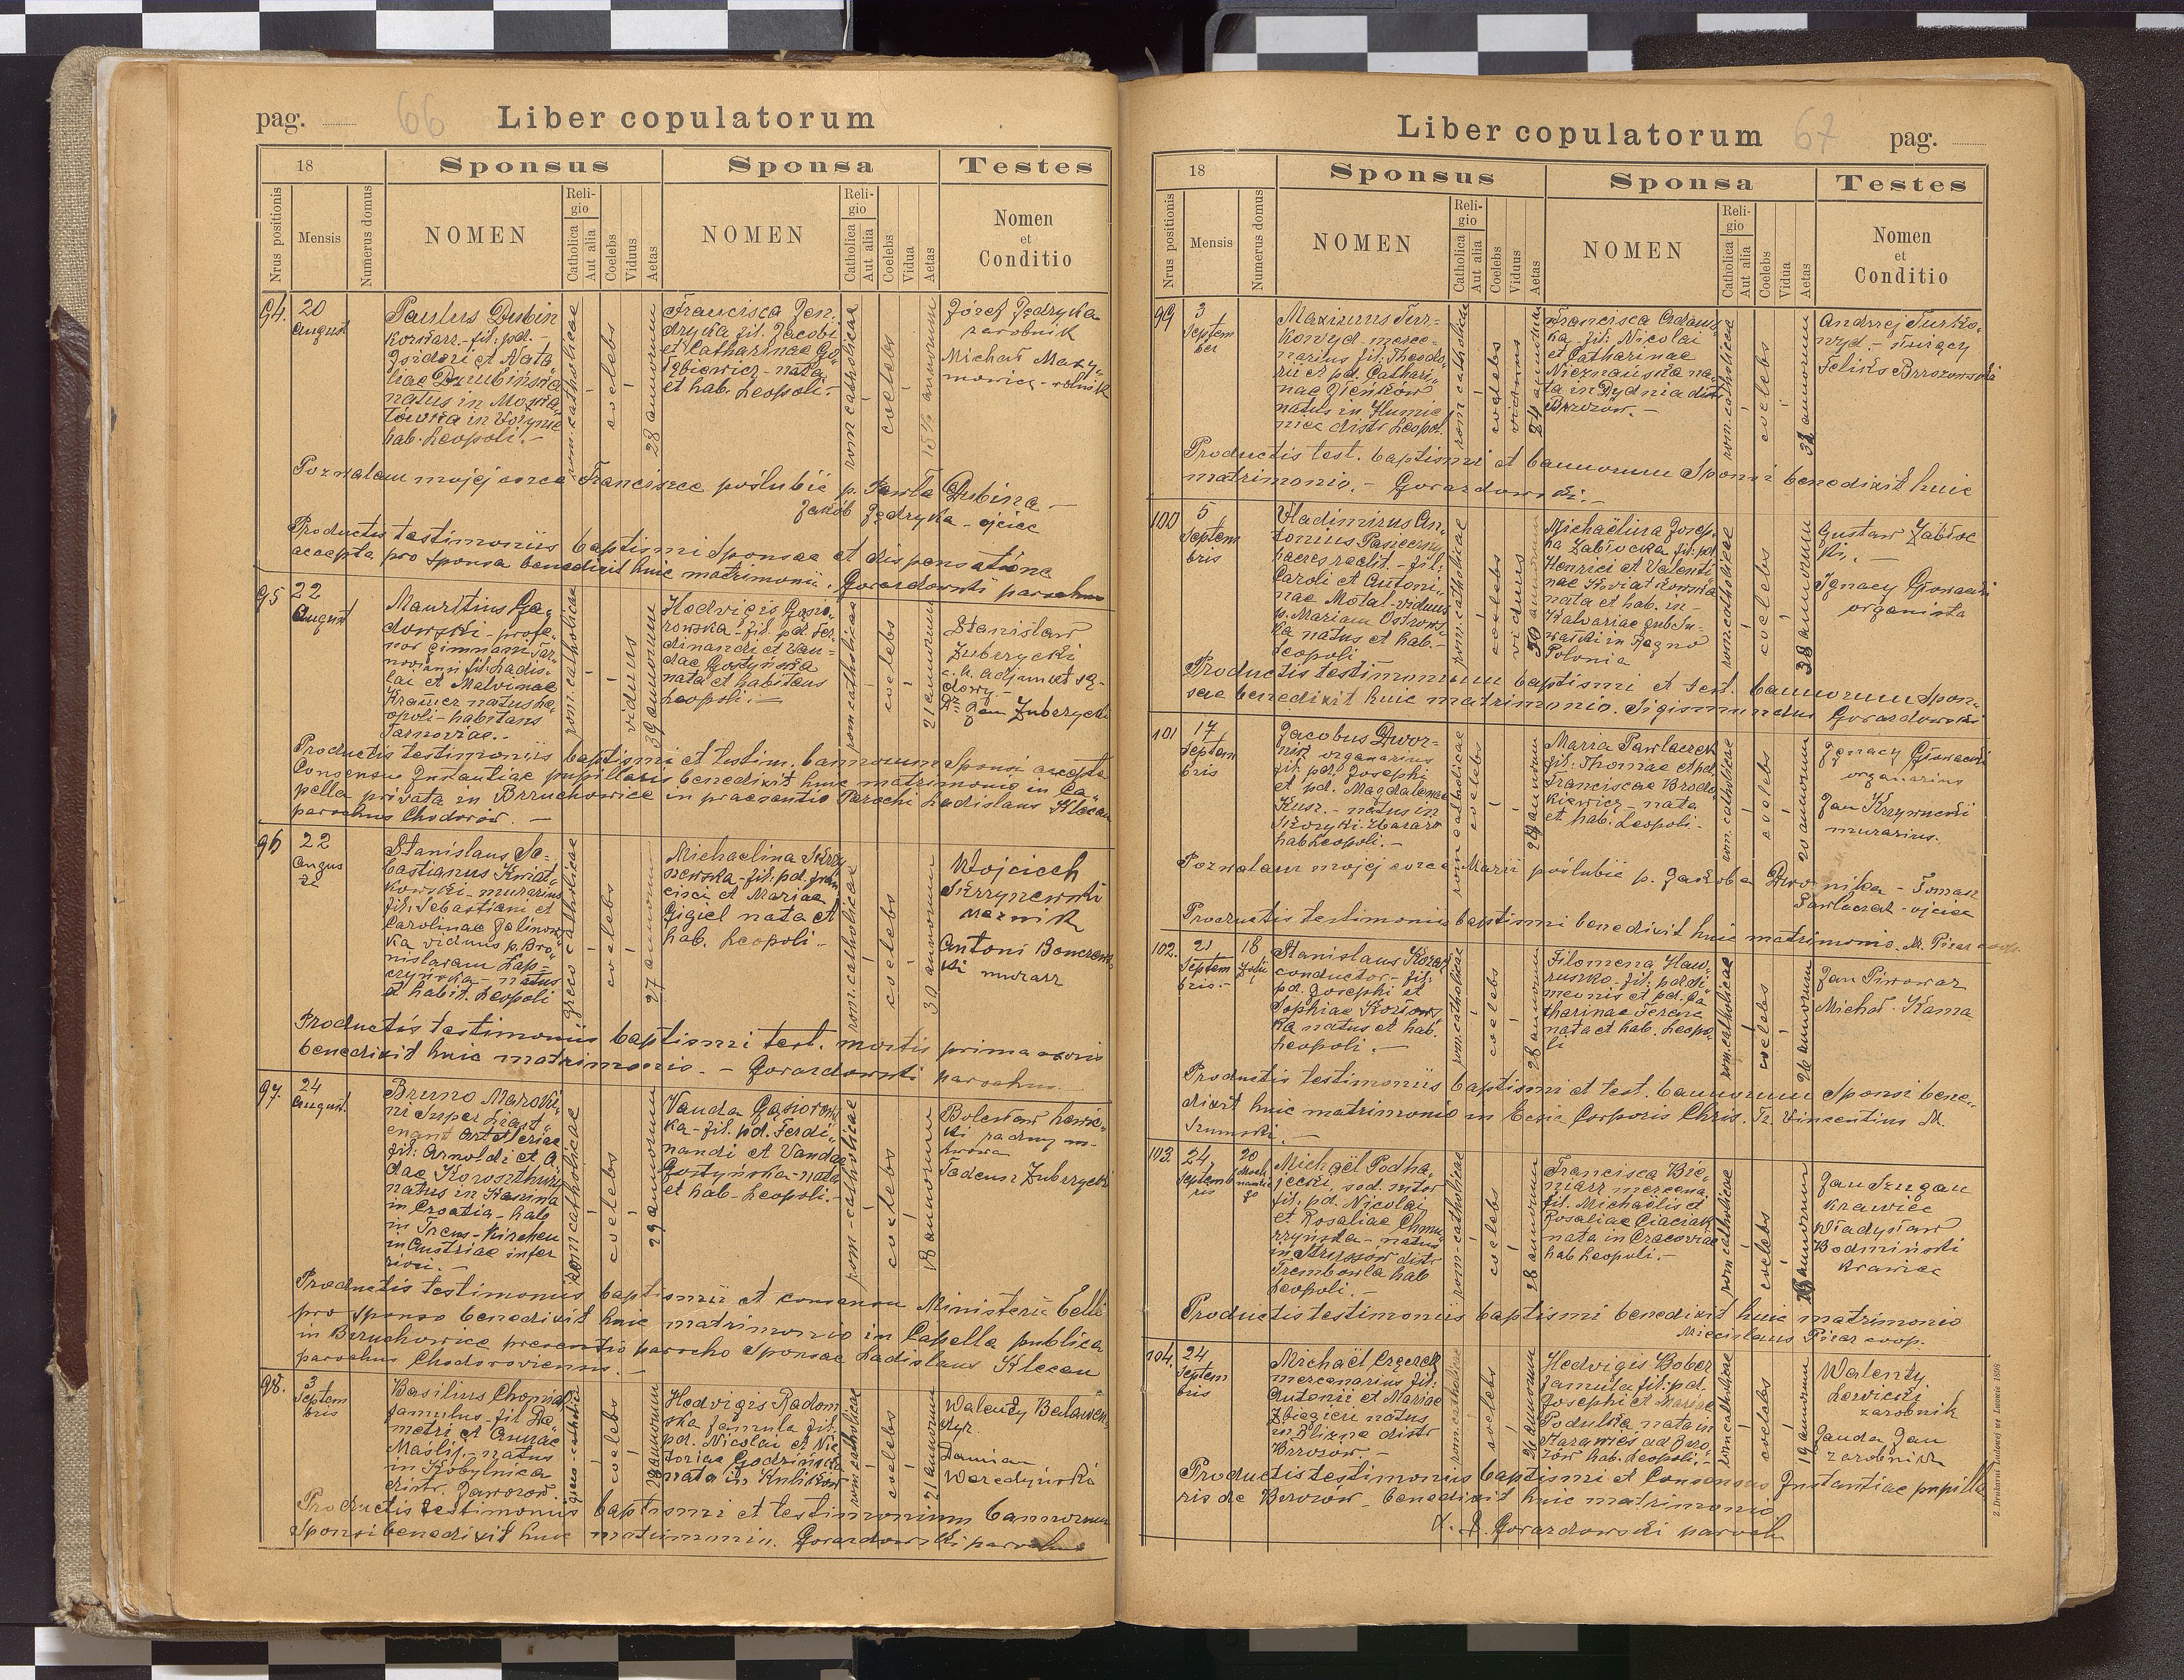 pag. 66 Liber copulatorum
18 Sponsus Sponsa Testes
Nrus positionis Mensis Numerus domus NOMEN Religio Catholica Aut alia Coelebs Viduus Aetas NOMEN Religio Catholica Aut alia Coelebs Vidua Aetas Nomen et Conditio
94. 20 August
Paulus Dubin
liae
natus in
hab. Leopoli.-
rom. catholicae
coelebs
28 annorum
Francisca Jen-
dryka fil. Jacobi
et Catharinae Go
nata
et hab. Leopoli.-
rom catholicae
coelebs
annorum
Józef Jędryka
zarobnik
Michał Maxy-
mowicz - rolnik
Pozwalam mojej córce Franciszce poślubić p. Pawła Dubina -
Jakób Jędryka - ojciec
Productis testimoniis baptismi Sponsae et dispensatione
accepta pro Sponsa benedixit huic matrimonii. Gorazdowski parochus
95 22 August
Mauritius Ga-
dowski - profes-
sor Gimnasii Tar-
noviensi fil. Ladis-
lai et Malvinae
Kramer natus Le-
opoli - habitans
Tarnoviae.-
rom. catholicae
viduus
39 annorum
Hedvigis Gąsio-
rowska - fil. pd. Fer-
dinandi et Van-
dae Gostyńska
nata et habitans
Leopoli.-
rom catholicae
coelebs
21 annorum
Stanisław
Zuberzycki
c. k. adjunct są-
dowy.-
Jan Zuberzycki
Productis testimoniis baptismi et testim. bannorum Sponsi accepta
Consensu Instantiae pupillaris benedixit huic matrimonio in Ca-
pella privata in Brzuchowice in praesentia Parochi Ladislaus Klecan
parochus Chodorów. -
96 22 Augusti
Stanislaus Se-
bastianus Kwiat-
kowski - murarius
fil. Sebastiani et
Carolinae Zelinows
ka viduus p. Bro-
nislavam Łap-
czyńska - natus
et habit. Leopoli
greco catholicae
coelebs
27 annorum
Michaelina Skrzy
szewska - fil. pd. Fran
cisci et Mariae
Gigiel nata et
hab. Leopoli.-
rom. catholicae
coelebs
30 annorum
Wojciech
Skrzynewski
Antoni Bonczews
ki murarz
Productis testimoniis baptismi test. mortis prima uxoris
benedixit huic matrimonio. - Gorazdowski parochus
97. 24 August
Bruno Maroki-
ni Super Lieut-
enant Artilleriae
fil: Arnoldi et A
dae
natus in
in Croatia - hab
in Trens-Kirchen
in Austriae infer
riori.-
rom catholicae
coelebs
29 annorum
Vanda Gąsiorows
ka - fil. pd. Ferdi-
nandi et Vandae
Gostyńska - nata
et hab - Leopoli.-
rom - catholicae
coelebs
18 annorum
Bolesław Lewic-
ki radny m-
Lwowa
Tadeusz Zuberzycki
Productis testimoniis baptismi et consensu Ministerii belli
pro Sponso benedixit huic matrimonio in Capella publica
in Brzuchowice presentia parocho Sponsae Ladislaus Klecan
parochus Chodoroviensis. -
98. 3 Septembris
Basilius Chomiak
famulus - fil De-
metri et Annae
Maslij - natus
in Kobylnica
distr. Jaworow.
greco - catholicae
coelebs
28 annorum
Hedvigis Radom
ska famula fil.
pd. Nicolai et Vic
toriae Godzińska
nata in Kulików
rom catholicae
coelebs
21 annorum
Walenty
Damian
Productis testimoniis baptismi et testimonium bannorum
Sponsi benedixit huic matrimonio. Gorazdowski parochus
Liber copulatorum 67 pag.
18 Sponsus Sponsa Testes
Nrus positionis Mensis Numerus domus NOMEN Religio Catholica Aut alia Coelebs Viduus Aetas NOMEN Religio Catholica Aut alia Coelebs Vidua Aetas Nomen et Conditio
99 3 September
Maximus Tur-
kowyd - merce-
narius fil. Theodo-
ri et pd. Cathari-
nae
natus in Humie
niec distr Leopol.
rom catholicae
coelebs
viduus
annorum
Francisca Adams
ka - fil. Nicolai
et Catharinae
Nieznańska na-
ta in Dydnia distr
Brzozów.-
rom. catholicae
coelebs
annorum
Andrzej Turko-
wyd.-
Feliks Brzozowski
Productis test. baptismi et bannorum Sponsi benedixit huic
matrimonio.- Gorazdowski.-
100 5 Septembris
Vladimirus An-
tonius Pasieczny
fil.
Caroli et Antoni-
nae Motal - viduus
p. Mariam Ostrows
ka natus et hab.-
Leopoli
rom. catholicae
coelebs
viduus
50 annorum
Michaëlina Josep-
ha Zabłocka fil. pd.
Henrici et Valenti
nae Kwiatkowska
nata et hab. in -
Kalvariae gub Su-
walki in Regno
Polonia
rom. catholicae
coelebs
38 annorum
Gustaw Zabłoc
ki.-
Ignacy Głowacki
organista
Productis testimonium baptismi et test. bannorum Spon-
sae benedixit huic matrimonio. Sigismundus Gorazdowski
101 17 Septembris
Jacobus Dwor-
nik organarius
fil. pd. Josephi
et pd. Magdalenae
Kusz. - natus in
hab Leopoli.-
rom catholicae
coelebs
annorum
Maria Pawlaczek
fil. Thomae et pd.
Franciscae Brodo-
kiewicz - nata
et hab. Leopoli.
rom. catholicae
coelebs
20 annorum
Ignacy Głowacki
organarius
Jan Krzywucki
murarius.
Pozwalam mojej córce Marii poślubić p. Jakóba Dwornika - Tomasz
Pawlaczek - ojciec
Productis testimoniis baptismi benedixit huic matrimonio. M. Pisar coop.
102. 21 Septembris.- 18
Stanislaus Kozak
conductor - fil.
pd. Josephi et
Sophiae Kozłows
ka natus et hab.
Leopoli.-
rom. catholicae
coelebs
28 annorum
Filomena Haw-
ruszko - fil. pd. Si-
meonis et pd. Ca
tharinae Ferenc
nata et hab. Leopo-
li
rom. catholicae
coelebs
26 annorum
Jan Piwowar
Michał Kama
Productis testimoniis baptismi et test. bannorum Sponsi bene-
dixit huic matrimonio in Eccia Corporis Chris. Fr. Vincentius M.
103. 24 Septembris 20
Michaël Podha-
jecki, sod. sutor
fil. pd. Nicolai
et Rosaliae Chmu
rzyńska - natus
in Strussow distr
Trembowla hab
Leopoli.-
rom - catholicae
coelebs
28 annorum
Francisca Bie-
niarz mercena.
fil. Michaëlis et
Rosaliae Ciaciak
nata in Cracoviae
hab Leopoli.-
rom catholicae
coelebs
annorum
Jan Szugan
Krawiec
Władysław
Bodmiński
Krawiec
Productis testimoniis baptismi benedixit huic matrimonio
Miecislaus Pisar coop.
104. 24 Septembris
Michaël Czyerek
mercenarius fil.
Antonii et Mariae
Zbiegien natus
in Blizna distr
Brzozow -
rom. catholicae
coelebs
26 annorum
Hedvigis Bober
famula fil: pd.
Josephi et Mariae
Podulka nata in
Starawieś ad Brzo-
zów hab. Leopoli.-
rom catholicae
coelebs
19 annorum
Walenty
Lewicki
zarobnik
Janda Jan
zarobnik
Productis testimoniis baptismi et Consensus Instantiae pupilla
ris de Brzozów - benedixit huic matrimonio
X. Z. Gorazdowski paroch
Z Drukarni Ludowej we Lwowie 1898